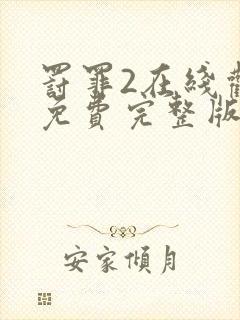 罸罪2在綫觀
免費完整版
安家傾月